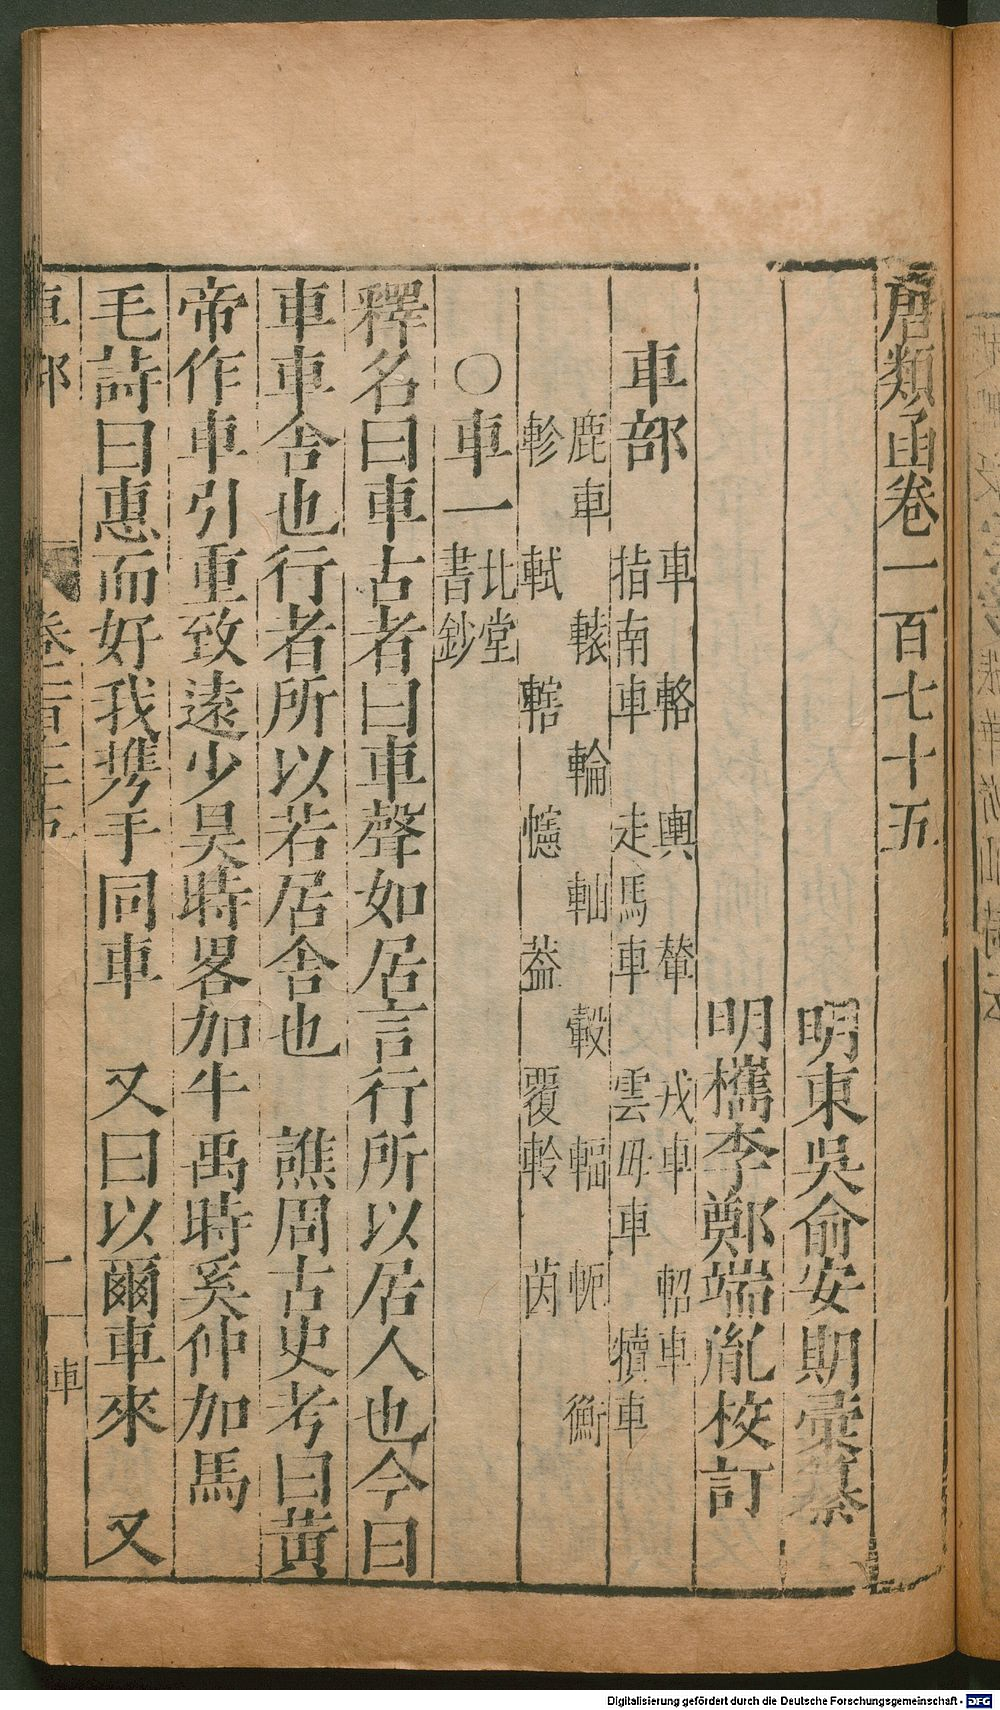 唐類函卷一百七十五
明東吳俞安期彙纂
明檇李鄭端胤校訂
車部
車 輅 輿 輦 戎車 軺車
指南車 走馬車 雲母車 犢車
鹿車 轅 輪 軕 轂 輻 軛 衡
軫 軾 轄 幰 葢 覆軨 茵
〇車一 北堂書鈔
釋名曰車古者曰車聲如居言行所以居人也今曰
車車舍也行者所以若居舍也 譙周古史考曰黃
帝作車引重致遠少昊時畧加牛禹時奚仲加馬
毛詩曰惠而好我携手同車 又曰以爾車來 又
車部 卷一百七十五 一 車
Digitalisierung gefördert durch die Deutsche Forschungsgemeinschaft - DFG